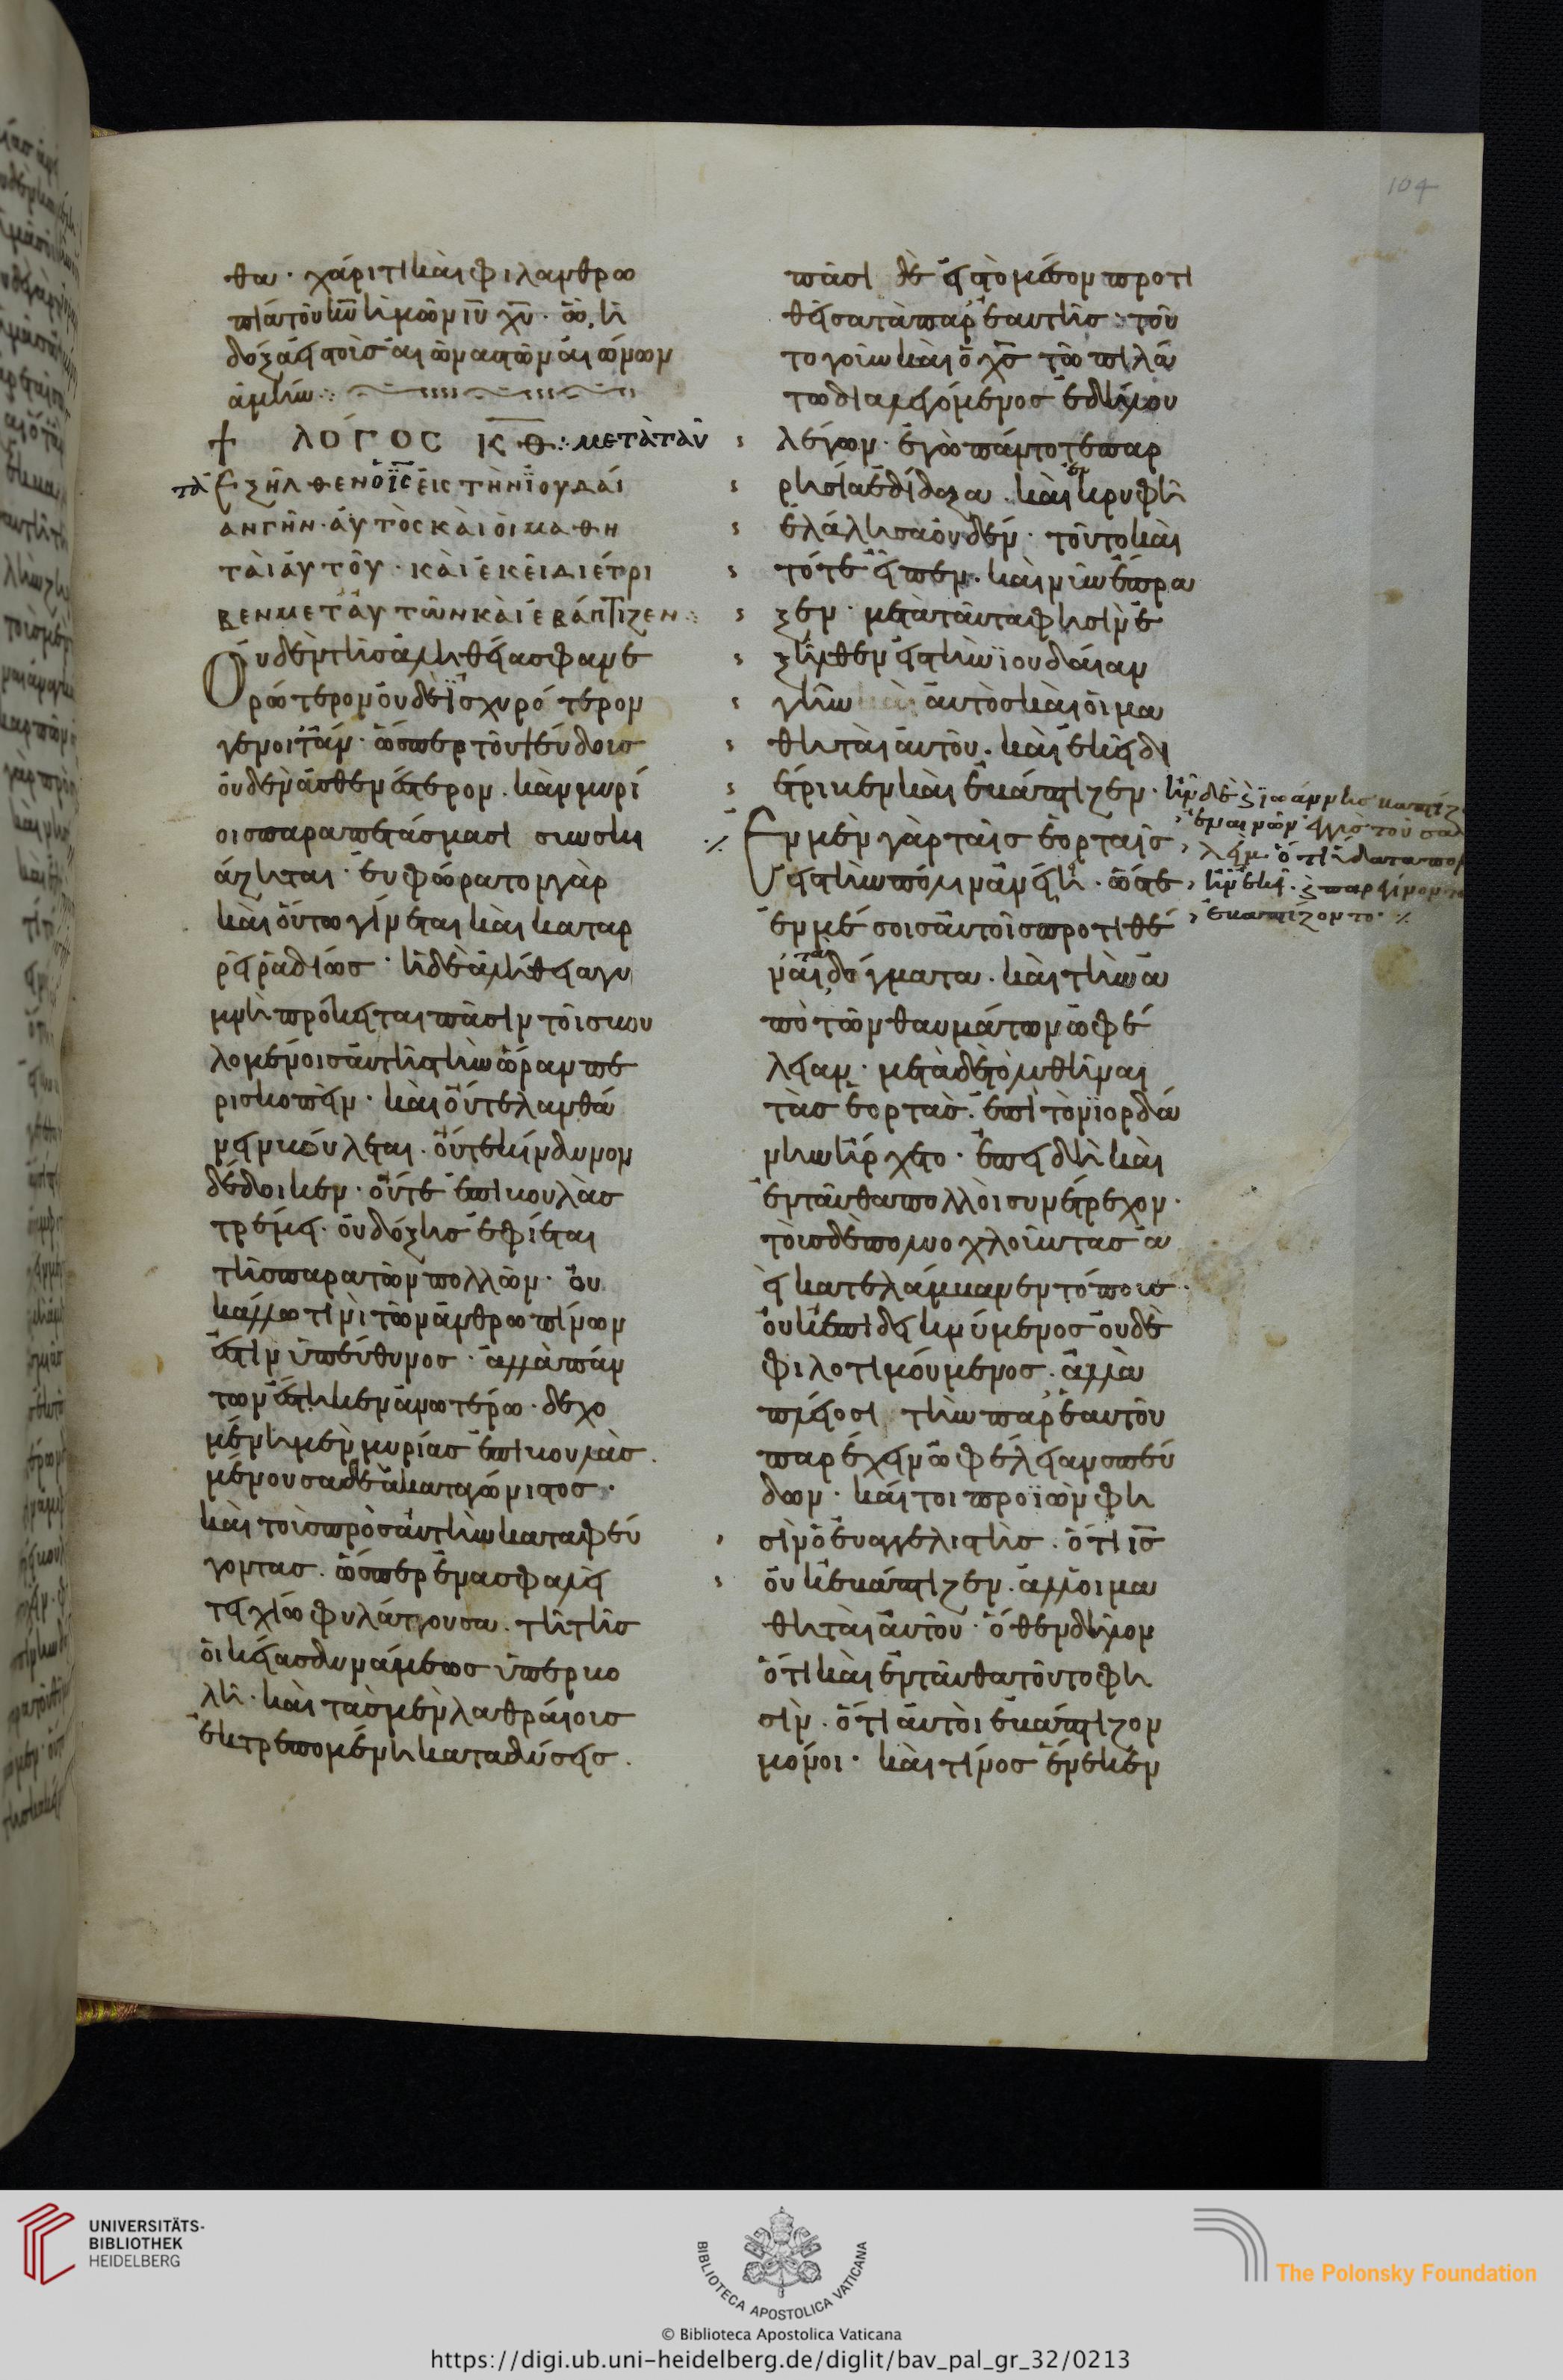 104
θω· χάριτι καὶ φιλανθρω
πία τοῦ κυ ἡμῶν ιυ χυ· ᾧ, ἡ
δόξα εἰς τοὺς αἰῶνας τῶν αἰώνων
ἀμήν
+ ΛΟΓΟΣ ΚΘ: ΜΕΤΑΤΑΥ
τὰ ἐξῆλθεν ὁ ισ εἰς τὴν ϊουδαί
αν γῆν· αὐτὸς καὶ οἱ μαθη
ταὶ αὐτοῦ· καὶ ἐκεῖ διέτρι
βεν μετ' αὐτῶν καὶ ἐβάπτιζεν
Οὐδὲν τῆς ἀληθείας φανε
ρώτερον οὐδὲ ϊσχυρότερον
γένοιτ' ἄν· ὥσπερ τοῦ ψεύδους
οὐδὲν ἀσθενέστερον. κἂν μυρί
οις παραπετάσμασι συσκι
άζηται· εὐφώρατον γὰρ
καὶ οὕτω γίνεται καὶ καταρ
ρεῖ ῥαδίως· ἡ δὲ ἀλήθεια γυ
μνὴ πρόκειται πᾶσιν τοῖς βου
λομένοις αὐτῆς τὴν ὥραν πε
ρισκοπεῖν· καὶ οὔτε λανθά
νειν βούλεται. οὔτε κίνδυνον
δέδοικεν· οὔτε ἐπιβουλὰς
τρέμει. οὐ δόξης ἐφίεται
τῆς παρὰ τῶν πολλῶν· οὐ
κ ἄλλω τινὶ τῶν ἀνθρωπίνων
ἐστὶν ὑπεύθυνος· ἀλλὰ πάν
των ἕστηκεν ἀνωτέρω· δεχο
μένη μὲν μυρίας ἐπιβουλὰς.
μένουσα δὲ ἀκαταγώνιστος·
καὶ τοὺς πρὸς αὐτὴν καταφεύ
γοντας. ὥσπερ ἐν ἀσφαλεῖ
τειχίω φυλάττουσα. τῆ τῆς
οἰκείας δυνάμεως ὑπερβο
λῆ· καὶ τὰς μὲν λαθραίους
ἐκτρεπομένη καταδύσεις.
πᾶσι δὲ εἰς τὸ μέσον προτι
θεῖσα τὰ παρ' ἑαυτῆς· τοῦ
το γοῦν καὶ ὁ χσ τῶ πιλά
τω διαλεγόμενος ἐδήλου
λέγων· ἐγὼ πάντοτε παρ
ρησία ἐδίδαξα. καὶ ἐν κρυφῆ
ἐλάλησα οὐδέν· τοῦτο καὶ
τότε εἶπεν. καὶ νῦν ἔπρα
ξεν· μετὰ ταῦτα φησὶν ἐ
ξῆλθεν εἰς τὴν ϊουδαίαν
γῆν αὐτὸς καὶ οἱ μα
θηταὶ αὐτοῦ. καὶ ἐκεῖ δι
έτριβεν καὶ ἐβάπτιζεν·
ἐν μὲν γὰρ ταῖς ἑορταῖς
εἰς τὴν πόλιν ἀνῄει· ὥστε
ἐν μέσοις αὐτοῖς προτιθέ
ναι τὰ δόγματα. καὶ τὴν ἀ
πὸ τῶν θαυμάτων ὠφέ
λειαν· μετὰ δὲ τὸ λυθῆναι
τὰς ἑορτὰς. ἐπὶ τὸν ϊορδά
νην ἤρχετο· ἐπειδὴ καὶ
ἐνταῦθα πολλοὶ συνέτρεχον·
τοὺς δὲ πολυοχλοῦντας ἀ
εὶ κατελάμβανεν τόπους·
οὐκ ἐπιδεικνύμενος οὐδὲ
φιλοτιμούμενος. ἀλλὰ
πλείοσι τὴν παρ' ἑαυτοῦ
παρέχειν ὠφέλειαν σπεύ
δων· καίτοι προϊὼν φη
σὶν ὁ εὐαγγελιστὴς. ὅτι ισ
οὐκ ἐβάπτιζεν. ἀλλ' οἱ μα
θηταὶ αὐτοῦ· ὅθεν δῆλον
ὅτι καὶ ἐνταῦθα τοῦτο φη
σὶν. ὅτι αὐτοὶ ἐβάπτιζον
μόνοι· καὶ τίνος ἕνεκεν
ἦν δὲ ϊωάννης βαπτίζ
ἐν αἰνὼν ἐγγὺς τοῦ σα
λείμ ὅτι ὕδατα πολ
ἦν ἐκεῖ. παρεγίνοντο
ἐβαπτίζοντο·
UNIVERSITÄTS-
BIBLIOTHEK
HEIDELBERG
BIBLIOTECA APOSTOLICA VATICANA
The Polonsky Foundation
© Biblioteca Apostolica Vaticana
https://digi.ub.uni-heidelberg.de/diglit/bav_pal_gr_32/0213